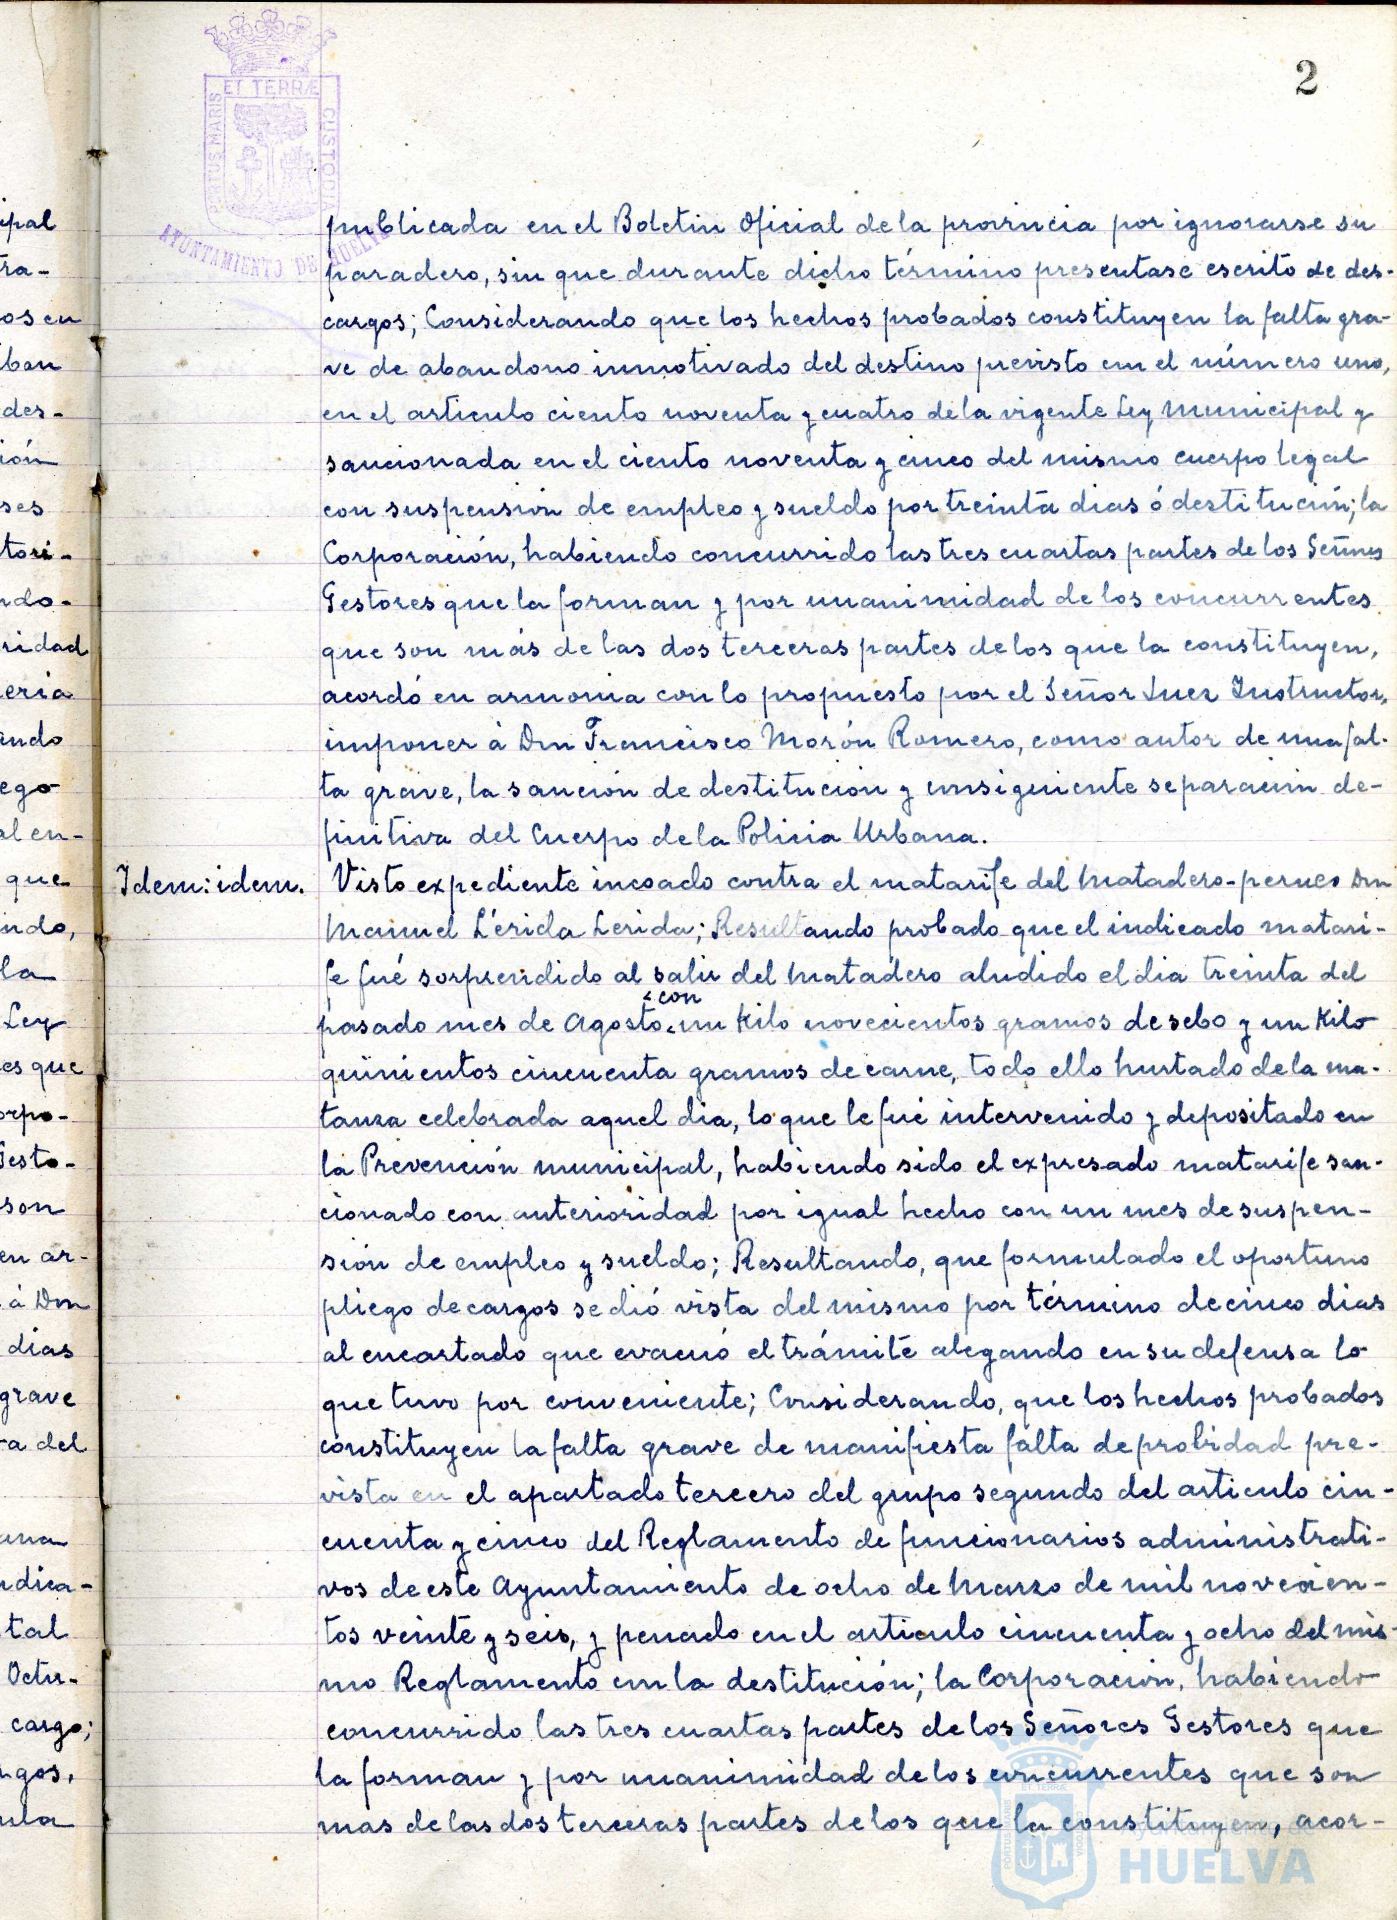 2
ET TERRÆ
PORTUS MARIS
CUSTODIA
AYUNTAMIENTO DE HUELVA
publicada en el Boletin Oficial de la provincia por ignorarse su
paradero, sin que durante dicho término presentase escrito de des-
cargos; Considerando que los hechos probados constituyen la falta gra-
ve de abandono inmotivado del destino previsto en el número uno,
en el articulo ciento noventa y cuatro de la vigente Ley Municipal y
sancionada en el ciento noventa y cinco del mismo cuerpo legal
con suspensión de empleo y sueldo por treinta dias ó destitución; la
Corporación, habiendo concurrido las tres cuartas partes de los Señores
Gestores que la forman y por unanimidad de los concurrentes
que son más de las dos terceras partes de los que la constituyen,
acordó en armonia con lo propuesto por el Señor Juez Instructor,
imponer á Don Francisco Morón Romero, como autor de una fal-
ta grave, la sanción de destitución y consiguiente separación de-
finitiva del Cuerpo de la Policia Urbana.
Idem: idem. Visto expediente incoado contra el matarife del Matadero-perneo Don
Manuel Lérida Lerida; Resultando probado que el indicado matari-
fe fué sorprendido al salir del Matadero aludido el dia treinta del
con
pasado mes de Agosto un Kilo novecientos gramos de sebo y un Kilo
quinientos cincuenta gramos de carne, todo ello hurtado de la ma-
tanza celebrada aquel dia, lo que le fué intervenido y depositado en
la Prevención municipal, habiendo sido el expresado matarife san-
cionado con anterioridad por igual hecho con un mes de suspen-
sión de empleo y sueldo; Resultando, que formulado el oportuno
pliego de cargos se dió vista del mismo por término de cinco dias
al encartado que evacuó el trámite alegando en su defensa lo
que tuvo por conveniente; Considerando, que los hechos probados
constituyen la falta grave de manifiesta falta de probidad pre-
vista en el apartado tercero del grupo segundo del articulo cin-
cuenta y cinco del Reglamento de funcionarios administrati-
vos de este Ayuntamiento de ocho de Marzo de mil novecien-
tos veinte y seis, y penado en el articulo cincuenta y ocho del mis-
mo Reglamento con la destitución; la Corporación, habiendo
concurrido las tres cuartas partes de los Señores Gestores que
la forman y por unanimidad de los concurrentes que son
mas de las dos terceras partes de los que la constituyen, acor-
Ayuntamiento de
HUELVA